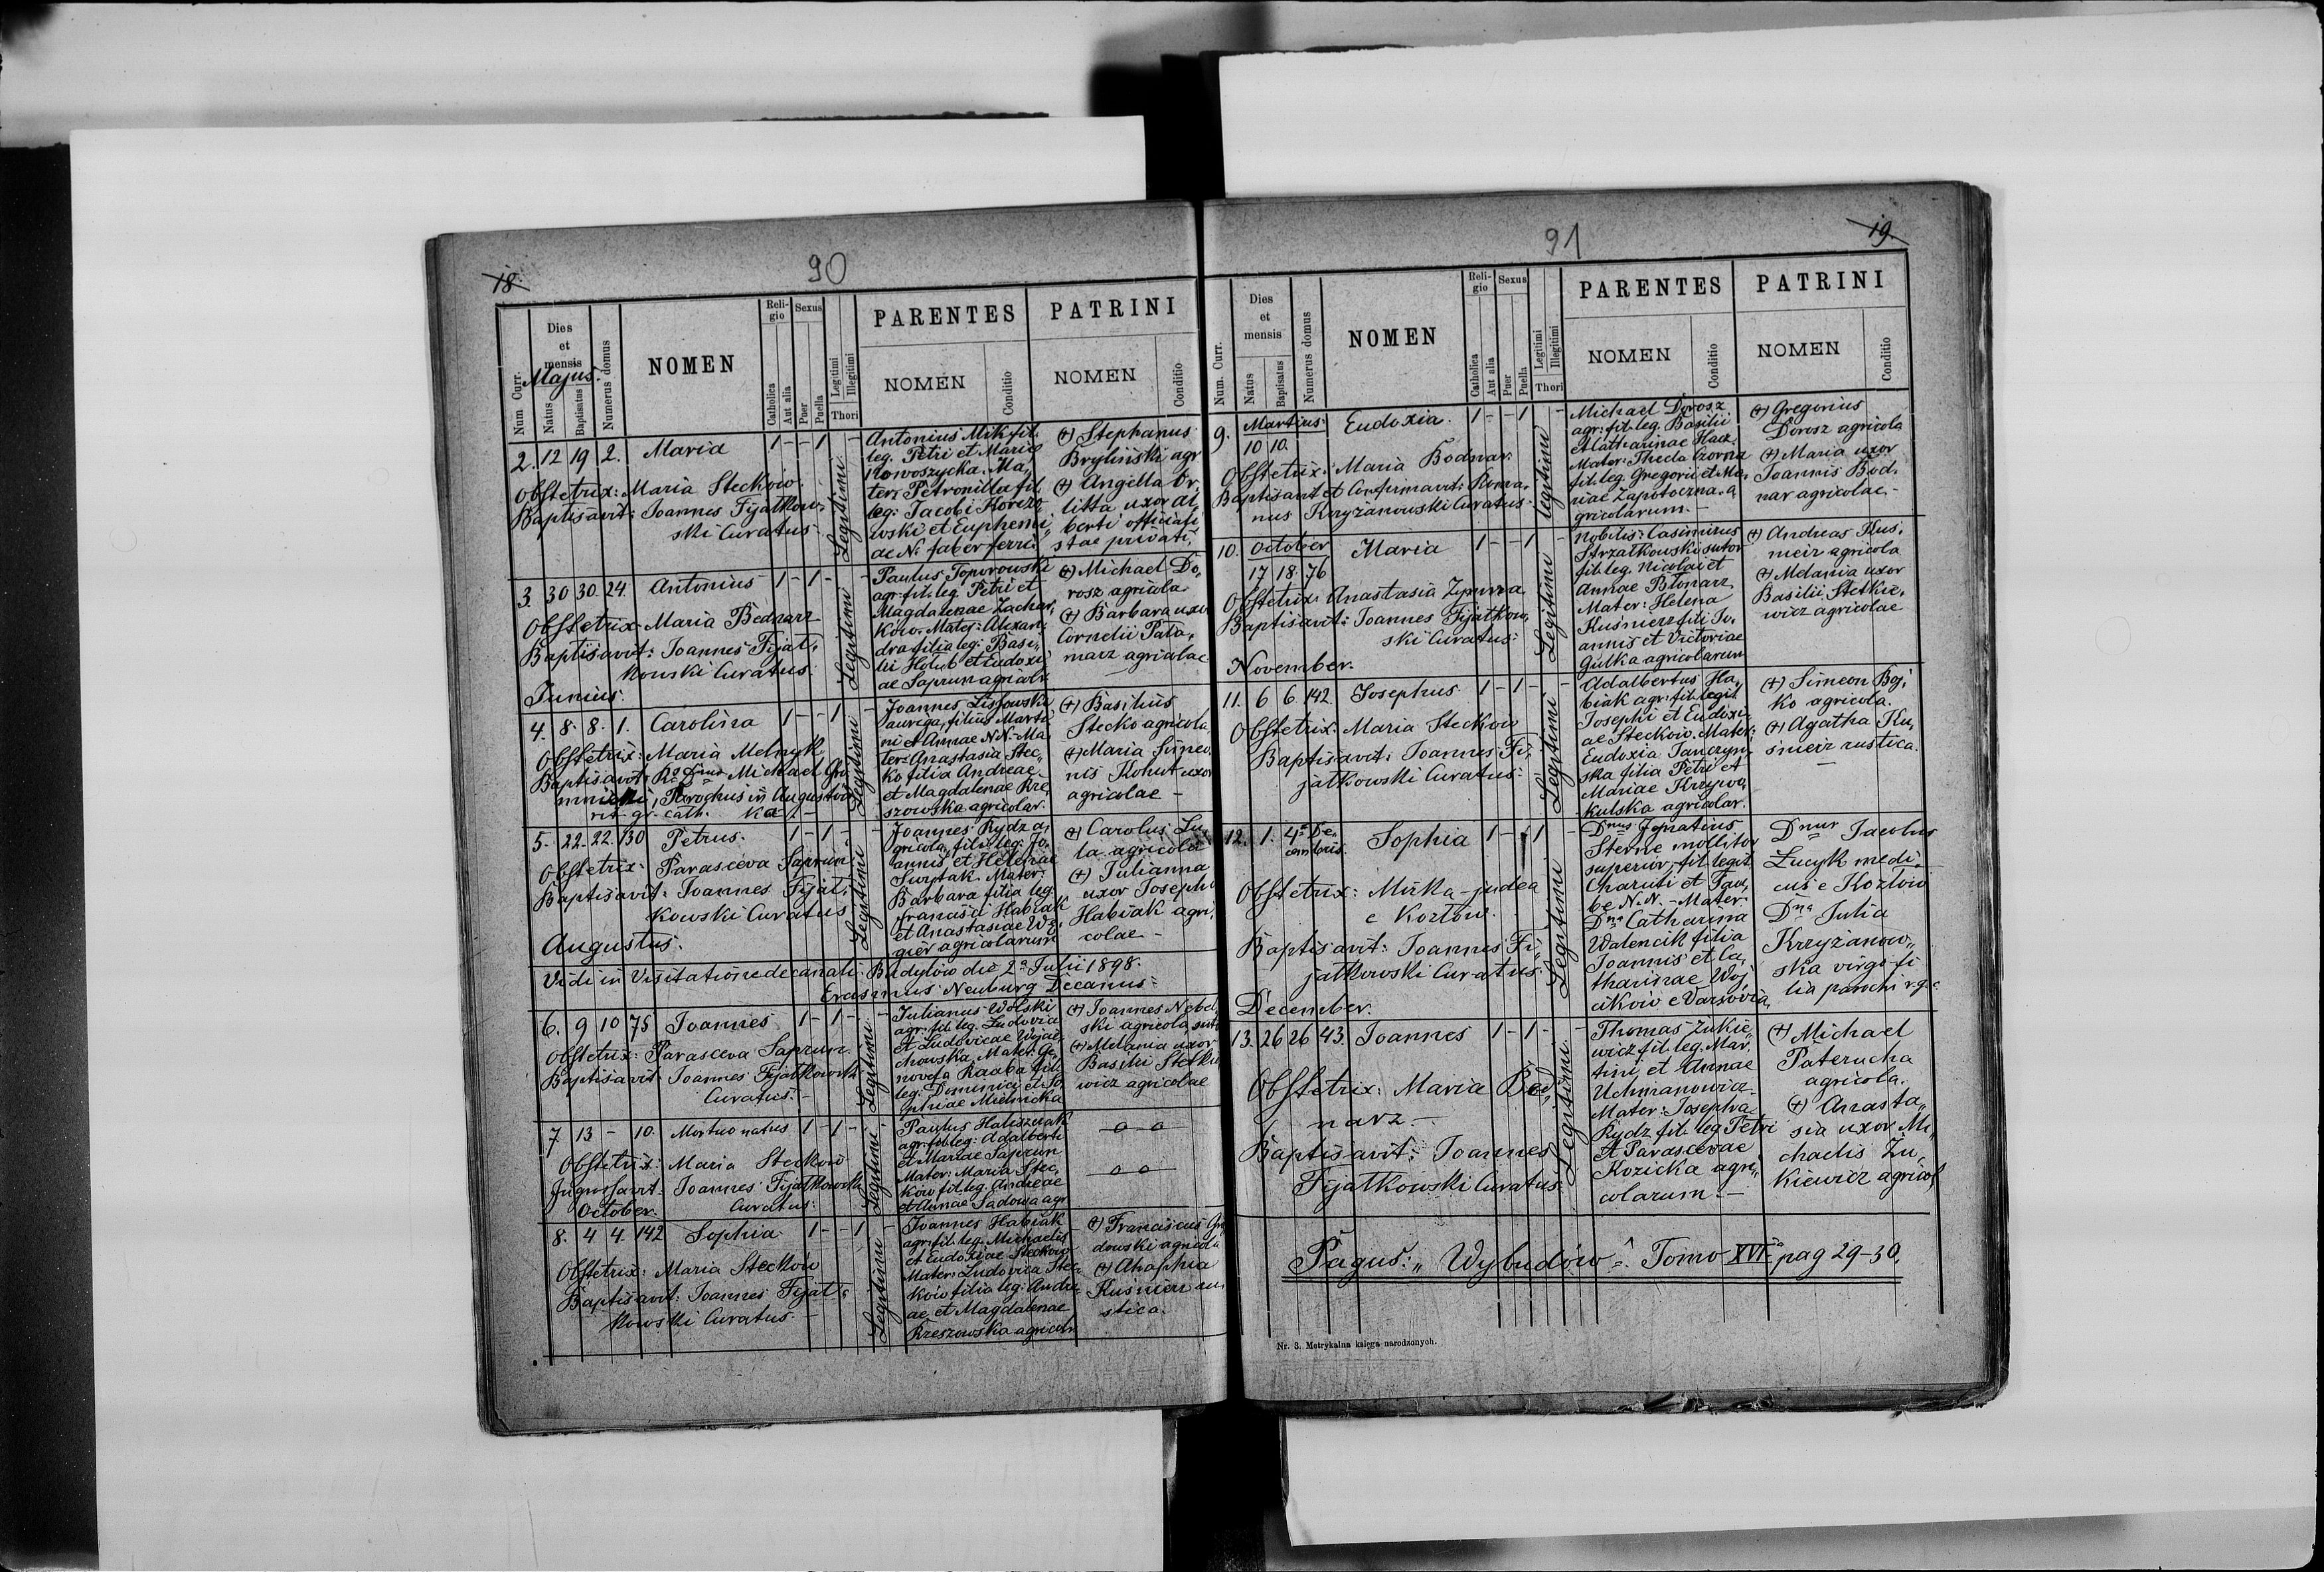 18.
90
Num Curr.
Dies
et
mensis
Majus.
Natus
Baptisatus
Numerus domus
NOMEN
Reli-
gio
Catholica
Aut alia
Sexus
Puer
Puella
Legitimi
Illegitimi
Thori
PARENTES
NOMEN
Conditio
PATRINI
NOMEN
Conditio
2. 12 19 2. Maria 1 - - 1 -
Obstetrix: Maria Steckow
Baptisavit: Joannes Fijałkow-
ski Curatus.
Legitimi
Antonius Mik fil.
leg. Petri et Mariae
Nowoszycka. Ma-
ter: Petronilla fil.
leg: Jacobi
et Euphemi-
ae N. faber ferri
(+) Stephanus
Bryliński agr
(+) Angella Or
litta uxor Al,
berti officiali
stae privati,
3. 30 30. 24. Antonius 1 - 1 - -
Obstetrix: Maria Bednarz
Baptisavit: Joannes Fijał-
kowski Curatus.
Legitimi
Paulus Toporowski
agr: fil. leg. Petri et
Magdalenae Zachar,
ków. Mater: Alexan,
dra filia leg: Basi,
lii Hołub et Eudoxi
ae Saprun agricolr.
(+) Michael Do,
rosz agricola
(+) Barbara uxo
Cornelii Pata,
marz agricolae
Junius.
4. 8. 8. 1. Carolina 1 - - 1 -
Obstetrix: Maria Melnyk
Baptisavit: Michael
Parochus in Augustów
rit. gr. cath.
Legitimi
Joannes Lissowski
auriga, filius Marti
ni et Annae N.N. Ma-
ter: Anastasia Stec,
ko filia Andreae
et Magdalenae Kre
szowska agricolar.
(+) Basilius
Stecko agricola
(+) Maria Simeo
nis Kohut uxor
agricolae -
5. 22. 22. 130 Petrus. 1 - 1 - -
Obstetrix: Parasceva Saprun
Baptisavit: Joannes Fijał-
kowski Curatus
Legitimi
Joannes Rydz a,
gricola, fil. leg. Jo,
annis et Helenae
Mater:
Barbara filia leg.
Francisci Habiak
et Anastasiae Wę,
gier agricolarum
(+) Carolus
la agricola
(+) Julianna
uxor Josephi
Habiak agri,
colae -
Augustus.
Vidi in Visitatione decanali: Budyłów die 2a Julii 1898.
Erasmus Neuburg Decanus.
6. 9 10 75 Joannes 1 - 1 - -
Obstetrix: Parasceva Saprun
Baptisavit: Joannes Fijałkowski
Curatus. -
Legitimi
Julianus Wolski
agr. fil. leg. Ludovici
et Ludovicae Wojcie
chowska. Mater: Ge,
novefa Raaba fil.
leg. Dominici et So
phiae Mielnicka
(+) Joannes Nebel,
ski agricola
(+) Melania uxor
Basilii Stetkie
wicz agricolae
7. 13 - 10. Mortuo natus 1 - 1 - -
Obstetrix: Maria Steckow
Joannes Fijałkowski
Curatus.
Legitimi
Paulus Haliszczak
agr. fil. leg: Adalberti
et Mariae Saprun
Mater: Maria Stec,
ków fil. leg. Andreae
et Annae Sadowa agr.
October.
8. 4 4. 142 Sophia. 1 - - 1 -
Obstetrix: Maria Steckow
Baptisavit: Joannes Fijał-
kowski Curatus. -
Legitimi
Joannes Habiak
agr. fil. leg. Michaelis
et Eudoxiae Steckow
Mater: Ludovica Stec
ków filia leg: Andre
ae et Magdalenae
Kreszowska agricolr
(+) Franciscus
dowski agricola
(+) Ahaphia
Kuśnierz ru
stica.
91
19.
Num. Curr.
Dies
et
mensis
Natus
Baptisatus
Numerus domus
NOMEN
Reli-
gio
Catholica
Aut alia
Sexus
Puer
Puella
Legitimi
Illegitimi
Thori
PARENTES
NOMEN
Conditio
PATRINI
NOMEN
Conditio
9. Martius. Eudoxia. 1 - - 1 -
10 10.
Obstetrix: Maria Bodnar.
Baptisavit et Confirmavit: Roma,
nus Krzyżanowski Curatus.
legitimi
Michael Dorosz
agr: fil. leg. Basilii
et Catharinae
Mater: Thecla Czorna
fil. leg. Gregorii et Ma,
riae Zapotoczna. a
gricolarum. -
(+) Gregorius
Dorosz agricola
(+) Maria uxor
Joannis Bod,
nar agricolae. -
10. October Maria 1 - - 1 -
17 18. 76
Obstetrix: Anastasia
Baptisavit: Joannes Fijałkow,
ski Curatus.
Legitimi
Nobilis: Casimirus
Strzałkowski sutor
fil. leg. Nicolai et
Annae Błonarz
Mater: Helena
Kuśnierz fili Jo,
annis et Victoriae
Gulka agricolarum
(+) Andreas Kuś,
nierz agricola
(+) Melania uxor
Basilii Stetkie,
wicz agricolae
November.
11. 6 6. 142. Josephus 1 - 1 - -
Obstetrix: Maria Steckow
Baptisavit: Joannes Fi,
jałkowski Curatus.
Legitimi
Adalbertus Ha,
biak agr: fil. legit.
Josephi et Eudoxi
ae Steckow. Mater:
Eudoxia Janczyń,
ska filia Petri et
Mariae Krzywo,
kulska agricolar.
(+) Simeon Boj,
ko agricola.
(+) Agatha Ku,
śnierz rustica.
-
12. 1. 4a De-
cembris. Sophia 1 - - 1 -
Obstetrix: Mirka - judea
e Kozłów.
Baptisavit: Joannes Fi,
jałkowski Curatus.
Legitimi
Dnus Ignatius
Sterne mollitor
superior, fil. legit.
Charuti et Tau,
be N.N. - Mater.
Dna Catharina
Walencik filia
Joannis et Ca,
tharinae Woj,
cików e Varsovia
Dnus Jacobus
Łucyk medi,
cus e Kozłów
Dna Julia
Krzyżanow,,
ska virgo fi
lia parochi r. g. c
December.
13. 26 26 43. Joannes 1 - 1 - -
Obstetrix: Maria Bed,
narz. -
Baptisavit: Joannes
Fijałkowski Curatus.
Legitimi
Thomas Żukie,
wicz fil. leg. Mar,
tini et Annae
Uchmanowicz
Mater: Josepha
Rydz fil. leg Petri
et Parascevae
Kozicka agri,
colarum. -
(+) Michael
Paterucha
agricola.
(+) Anasta,
sia uxor Mi,
chaelis Żu,
kiewicz agricol
Pagus: „Wybudów". Tomo XVI pag 29-30.
Nr. 3. Metrykalna księga narodzonych.